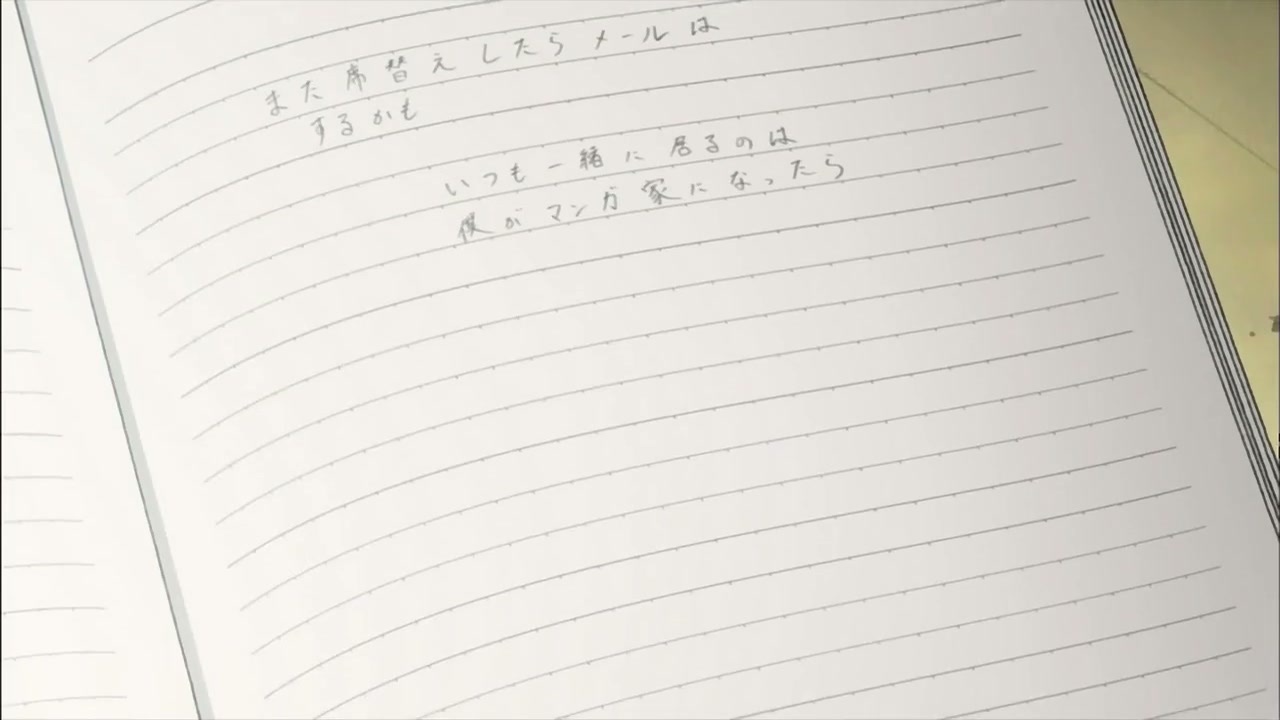 また席替えしたらメールは
するかも
いつも一緒に居るのは
僕がマンガ家になったら